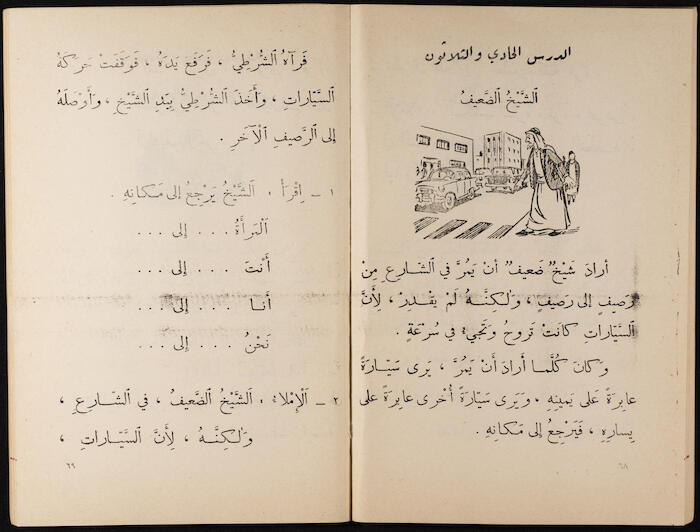 الدرس الحادي والثلاثون
اَلشَّيْخُ اَلضَّعِيفُ
أَرادَ شَيْخٌ ضَعِيفٌ أَنْ يَمُرَّ في اَلشّارِعِ مِنْ
رَصِيفٍ إلى رَصِيفٍ ، وَلٰكِنَّهُ لَمْ يَقْدِرْ ، لِأَنَّ
اَلسَّيّاراتِ كانَتْ تَروحُ وَتَجيءُ في سُرْعَةٍ .
وَكانَ كُلَّما أَرادَ أَنْ يَمُرَّ ، يَرى سَيّارَةً
عابِرَةً عَلى يَمِينِهِ ، وَيَرى سَيّارَةً أُخْرى عابِرَةً عَلى
يِسارِهِ ، فَيَرْجِعُ إلى مَكانِهِ .
٦٨
فَرَآهُ اَلشُّرْطِيُّ ، فَرَفَعَ يَدَهُ ، فَوَقَفَتْ حَرَكَةُ
اَلسَّيّاراتِ ، وَأَخَذَ اَلشُّرْطِيُّ بِيَدِ اَلشَّيْخِ ، وَأَوْصَلَهُ
إلى اَلرَّصيفِ اَلْآخَرِ .
١ – اِقْرَأْ : اَلشَّيْخُ يَرْجِعُ إلى مَكانِهِ .
اَلْمَرأَةُ . . . إلى . . .
أَنْتَ . . . إلى . . .
أَنا . . . إلى . . .
نَحْنُ . . . إلى . . .
٢ – اَلْإِمْلاءُ : اَلشَّيْخُ اَلضَّعيفُ ، في اَلشّارِعِ ،
وَلٰكِنَّهُ ، لِأَنَّ اَلسَّيّاراتِ ،
٦٩